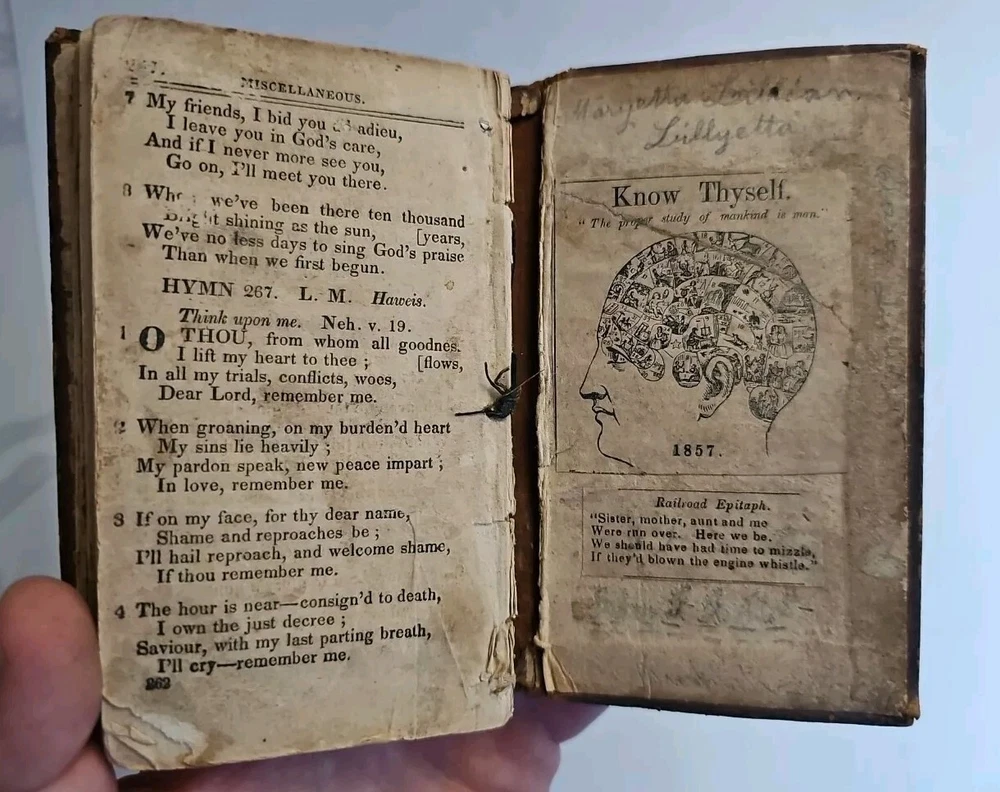 MISCELLANEOUS.
7 My friends, I bid you adieu,
I leave you in God's care,
And if I never more see you,
Go on, I'll meet you there.
8 we've been there ten thousand
shining as the sun, [years,
We've no less days to sing God's praise
Than when we first begun.
HYMN 267. L. M. Haweis.
Think upon me. Neh. v. 19.
1 O THOU, from whom all goodness
I lift my heart to thee ; [flows,
In all my trials, conflicts, woes,
Dear Lord, remember me.
2 When groaning, on my burden'd heart
My sins lie heavily ;
My pardon speak, new peace impart ;
In love, remember me.
3 If on my face, for thy dear name,
Shame and reproaches be ;
I'll hail reproach, and welcome shame,
If thou remember me.
4 The hour is near—consign'd to death,
I own the just decree ;
Saviour, with my last parting breath,
I'll cry—remember me.
262
Lillyetta
Know Thyself.
"The proper study of mankind is man."
1857.
Railroad Epitaph.
"Sister, mother, aunt and me
Were run over. Here we be.
We should have had time to mizzle,
If they'd blown the engine whistle."